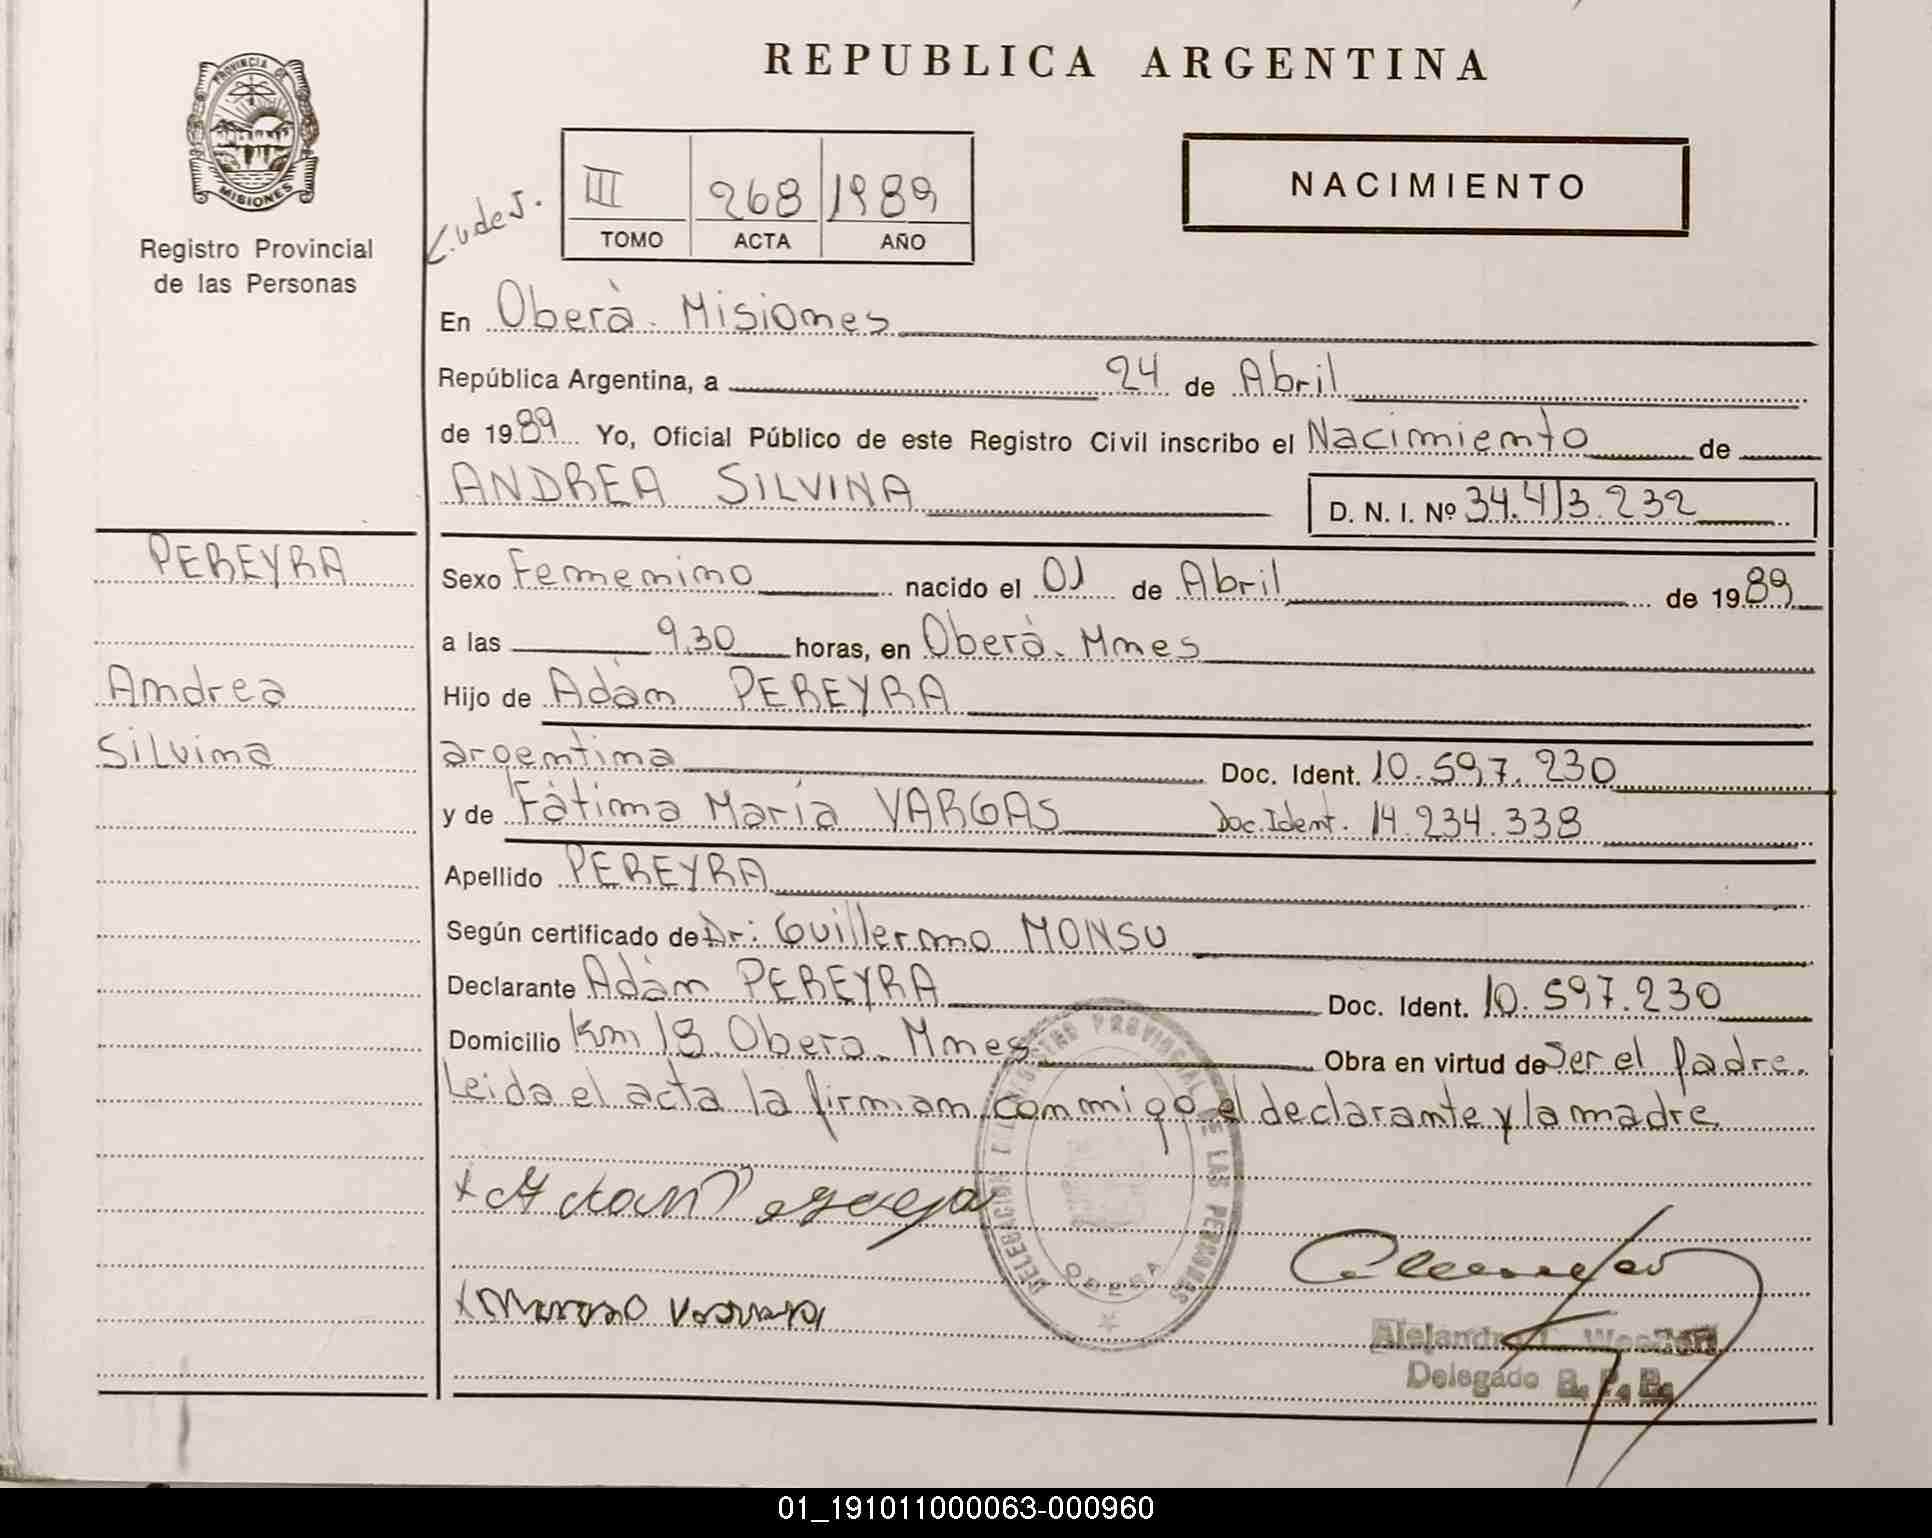 REPUBLICA ARGENTINA
PROVINCIA DE
MISIONES
Registro Provincial
de las Personas
III 268 1989
TOMO ACTA AÑO
NACIMIENTO
En Oberà. Misiones
República Argentina, a 24 de Abril
de 1989 Yo, Oficial Público de este Registro Civil inscribo el Nacimiento de
ANDREA SILVINA D. N. I. Nº 34.413.232
PEREYRA
Andrea
Silvina
Sexo Femenino nacido el 01 de Abril de 1989
a las 9,30 horas, en Oberà. Mnes
Hijo de Adàn PEREYRA
argentina Doc. Ident. 10.597.230
y de Fàtima Marìa VARGAS Doc. Ident. 14.234.338
Apellido PEREYRA
Según certificado de Dr: Guillermo MONSU
Declarante Adàn PEREYRA Doc. Ident. 10.597.230
Domicilio Km 18 Obera. Mnes Obra en virtud de Ser el padre.
Leida el acta la firman conmigo el declarante y la madre
DELEGACION REGISTRO PROVINCIAL DE LAS PERSONAS
OBERA
Delegado R. P. P.
01_191011000063-000960